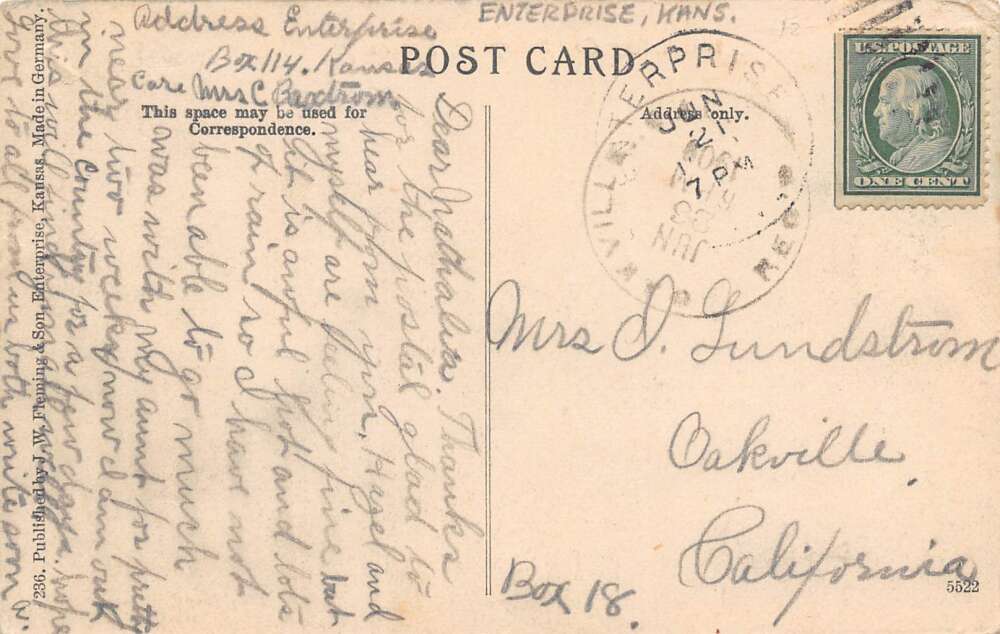 ENTERPRISE, KANS.
Address Enterprise
Box 114. Kansas
Care Mrs C Baxtrom
POST CARD.
This space may be used for
Correspondence.
Address only.
U.S. POSTAGE
ONE CENT
ENTERPRISE
JUN
21
7 PM
REC'D
Dear Nathalia. Thanks
for the postal glad to
hear from you. Hazel and
myself are feeling fine but
it is awful hot and lots
of rain so I have not
been able to go much
was with my aunt for pretty
near two weeks now I am out
in the country for a few days. hope
this will find you
give to all from us both write soon
Mrs J. Lundstrom
Oakville
California
Box 18.
236. Published by J. W. Fleming & Son, Enterprise, Kansas. Made in Germany.
5522